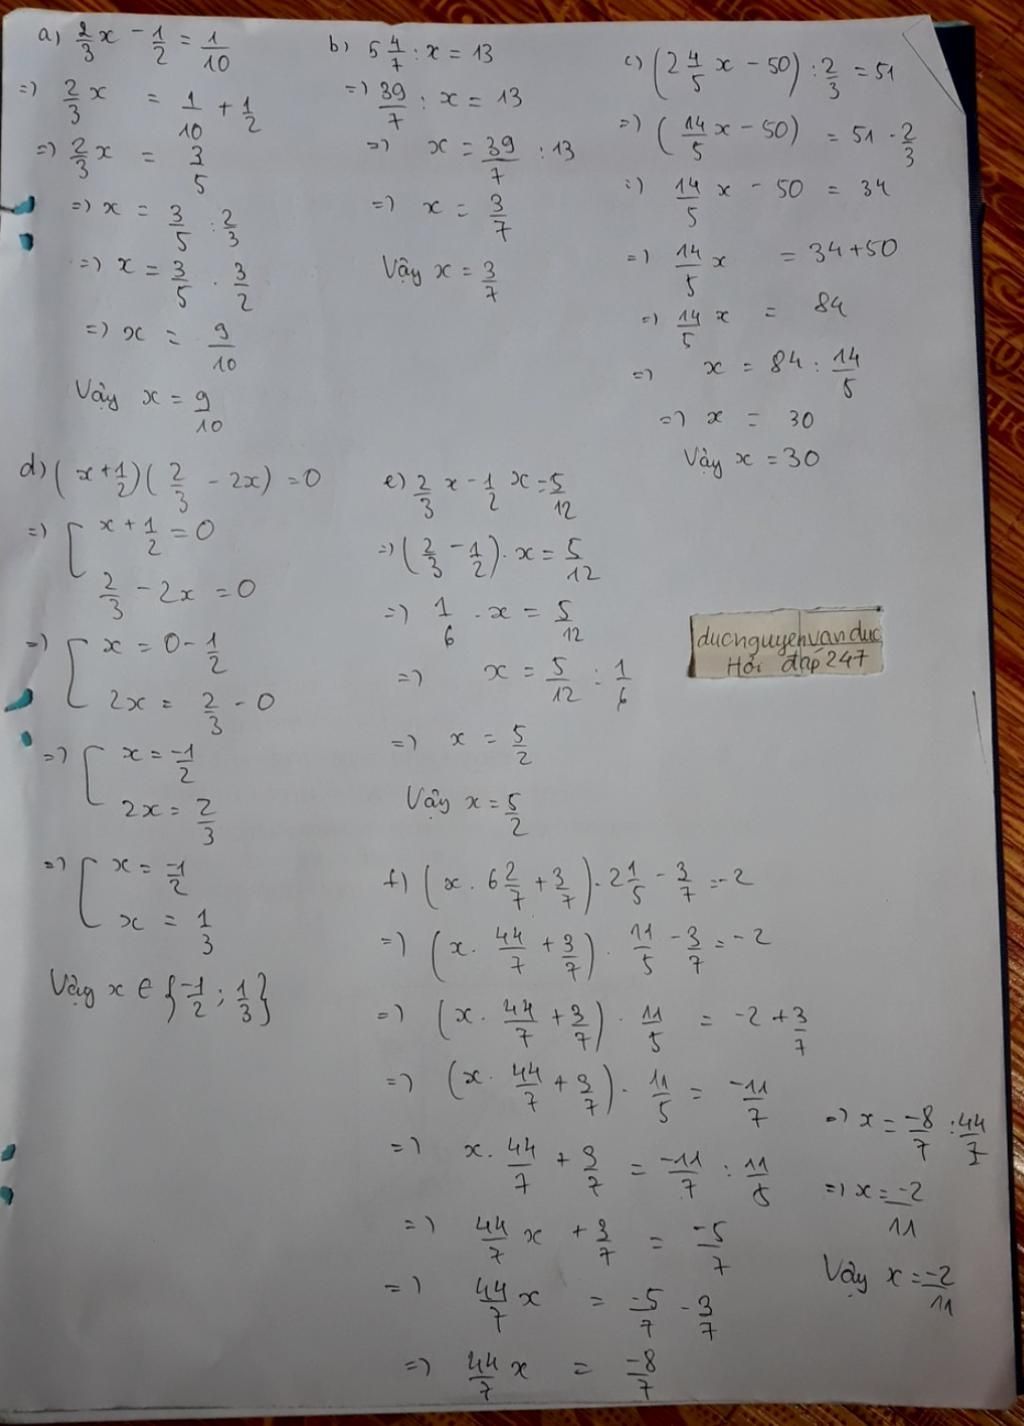 a) 2/3 x - 1/2 = 1/10
=) 2/3 x = 1/10 + 1/2
=) 2/3 x = 3/5
=) x = 3/5 : 2/3
=) x = 3/5 . 3/2
=) x = 9/10
Vậy x = 9/10
b) 5 4/7 : x = 13
=) 39/7 : x = 13
=) x = 39/7 : 13
=) x = 3/7
Vậy x = 3/7
c) (2 4/5 x - 50) : 2/3 = 51
=) (14/5 x - 50) = 51 . 2/3
=) 14/5 x - 50 = 34
=) 14/5 x = 34 + 50
=) 14/5 x = 84
=) x = 84 : 14/5
=) x = 30
Vậy x = 30
d) (x + 1/2) (2/3 - 2x) = 0
=) [ x + 1/2 = 0
2/3 - 2x = 0
=) [ x = 0 - 1/2
2x = 2/3 - 0
=) [ x = -1/2
2x = 2/3
=) [ x = -1/2
x = 1/3
Vậy x ∈ {-1/2 ; 1/3}
e) 2/3 x - 1/2 x = 5/12
=) (2/3 - 1/2) . x = 5/12
=) 1/6 . x = 5/12
=) x = 5/12 : 1/6
=) x = 5/2
Vậy x = 5/2
ducnguyenvanduc
Hỏi đáp 247
f) (x . 6 2/7 + 3/7) . 2 1/5 - 3/7 = -2
=) (x . 44/7 + 3/7) . 11/5 - 3/7 = -2
=) (x . 44/7 + 3/7) . 11/5 = -2 + 3/7
=) (x . 44/7 + 3/7) . 11/5 = -11/7
=) x . 44/7 + 3/7 = -11/7 : 11/5
=) 44/7 x + 3/7 = -5/7
=) 44/7 x = -5/7 - 3/7
=) 44/7 x = -8/7
=) x = -8/7 : 44/7
=) x = -2/11
Vậy x = -2/11